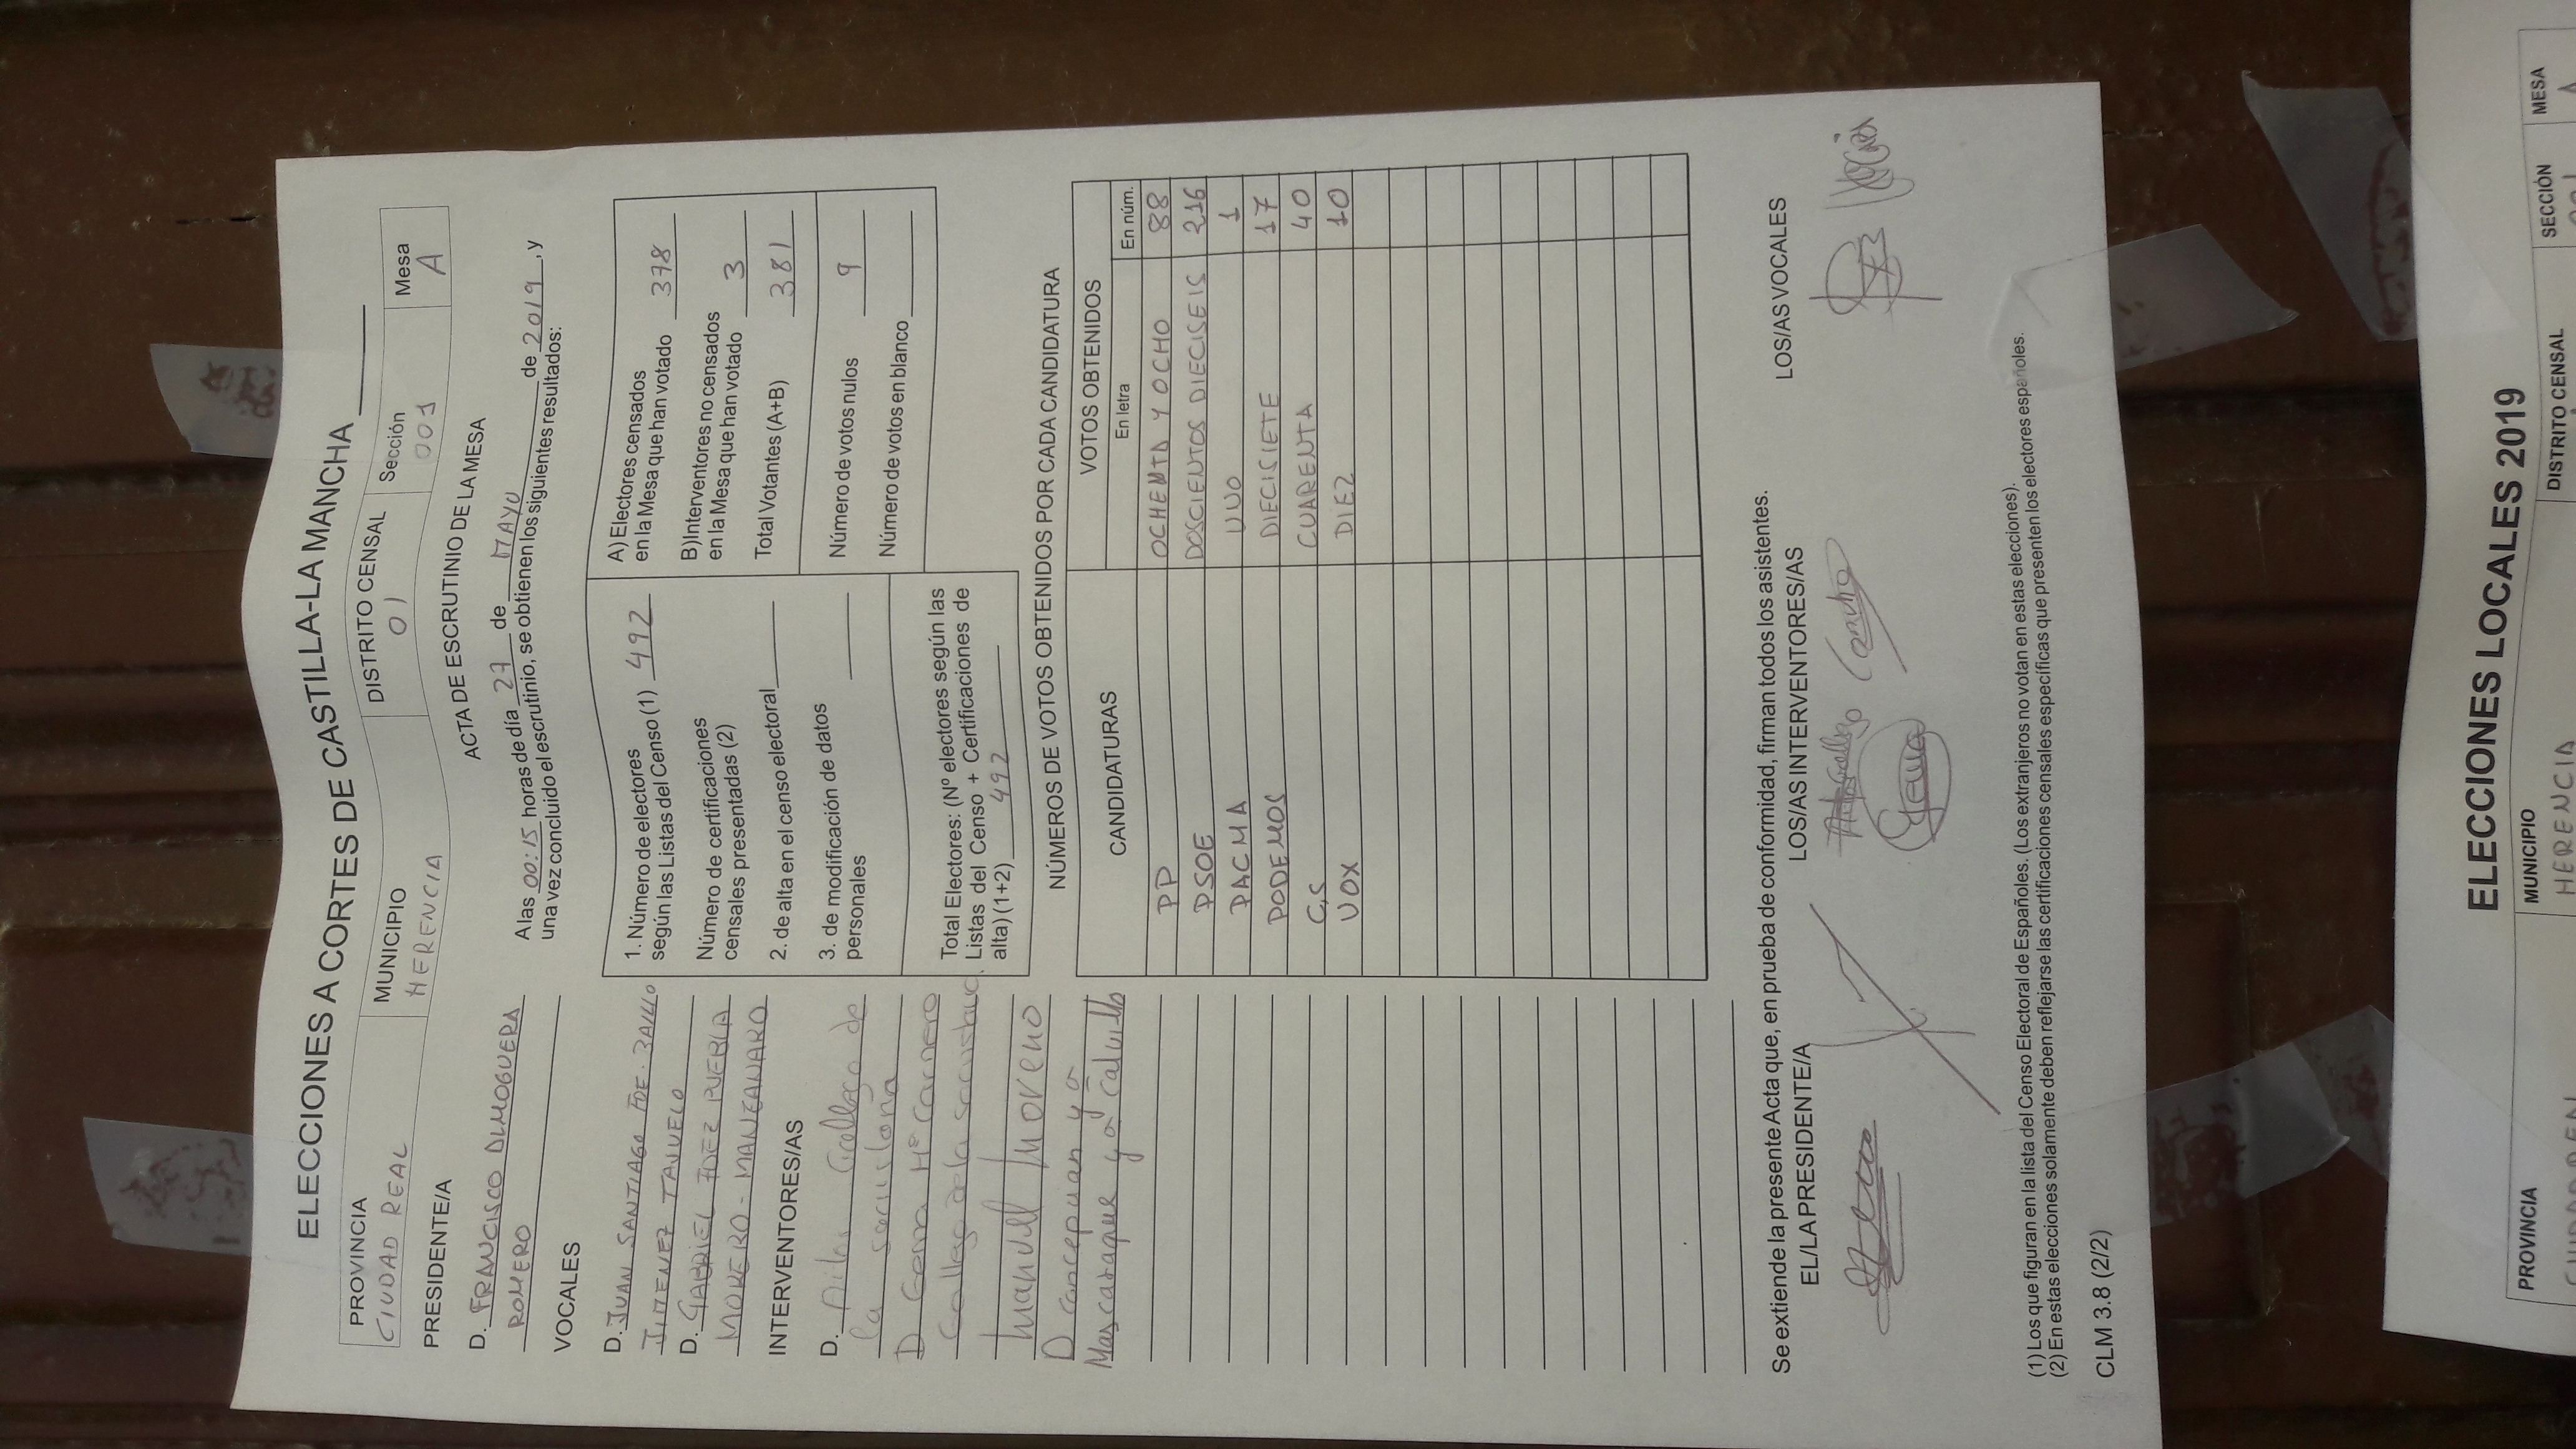 ELECCIONES A CORTES DE CASTILLA-LA MANCHA
PROVINCIA
CIUDAD REAL
MUNICIPIO
HERENCIA
DISTRITO CENSAL
01
Sección
001
Mesa
A
ACTA DE ESCRUTINIO DE LA MESA
PRESIDENTE/A
D. FRANCISCO
ROMERO
VOCALES
D. JUAN SANTIAGO FDE. BAILLO
JIMENEZ TAJUELO
D. GABRIEL FDEZ PUEBLA
MORENO - MANZANARO
INTERVENTORES/AS
D. Pilar Gallego de
la serrislona
D Gema Mª Carnero
Gallego de la
Manuel Moreno
D concepcion y a
Mascaraque y a Calvillo
A las 00:15 horas de día 27 de MAYO de 2019, y
una vez concluido el escrutinio, se obtienen los siguientes resultados:
1. Número de electores
según las Listas del Censo (1) 492
Número de certificaciones
censales presentadas (2)
2. de alta en el censo electoral
3. de modificación de datos
personales
Total Electores: (Nº electores según las
Listas del Censo + Certificaciones de
alta) (1+2) 492
A) Electores censados
en la Mesa que han votado 378
B) Interventores no censados
en la Mesa que han votado 3
Total Votantes (A+B) 381
Número de votos nulos 9
Número de votos en blanco
NÚMEROS DE VOTOS OBTENIDOS POR CADA CANDIDATURA
CANDIDATURAS
VOTOS OBTENIDOS
En letra
En núm.
PP OCHENTA Y OCHO 88
PSOE DOSCIENTOS DIECISEIS 216
PACMA UNO 1
PODEMOS DIECISIETE 17
C,S CUARENTA 40
VOX DIEZ 10
Se extiende la presente Acta que, en prueba de conformidad, firman todos los asistentes.
EL/LA PRESIDENTE/A
LOS/AS INTERVENTORES/AS
LOS/AS VOCALES
(1) Los que figuran en la lista del Censo Electoral de Españoles. (Los extranjeros no votan en estas elecciones).
(2) En estas elecciones solamente deben reflejarse las certificaciones censales específicas que presenten los electores españoles.
CLM 3.8 (2/2)
ELECCIONES LOCALES 2019
PROVINCIA
MUNICIPIO
HERENCIA
DISTRITO CENSAL
SECCIÓN
MESA
A